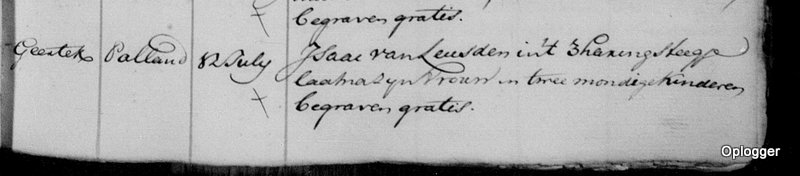 begraven gratis.
Geertek Palland 12 July Isaac van Leusden in't 3 haringsteegje
laat na zyn Vrouw en twee mondige Kinderen
begraven gratis.
Oplogger